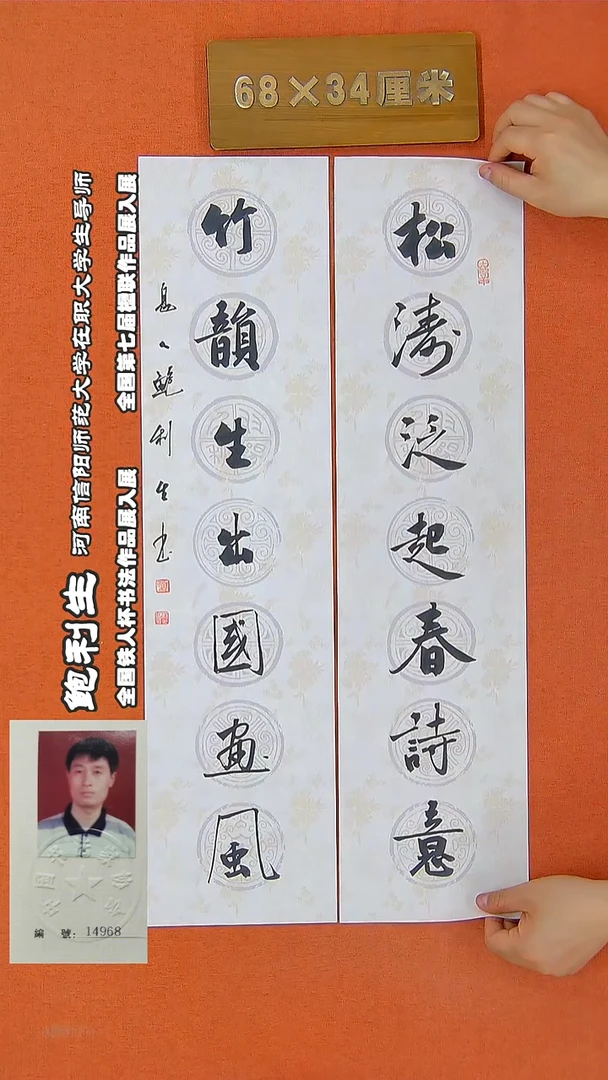 68×34厘米
松濤泛起春詩意
竹韻生出國畫風
鮑利生书
鲍利生 河南信阳师范大学在职大学生导师
全国铁人杯书法作品展入展 全国第七届楹联作品展入展
編 號: 14968